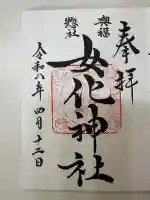 奉拝
興福
惣社
女化神社
令和八年四月十二日